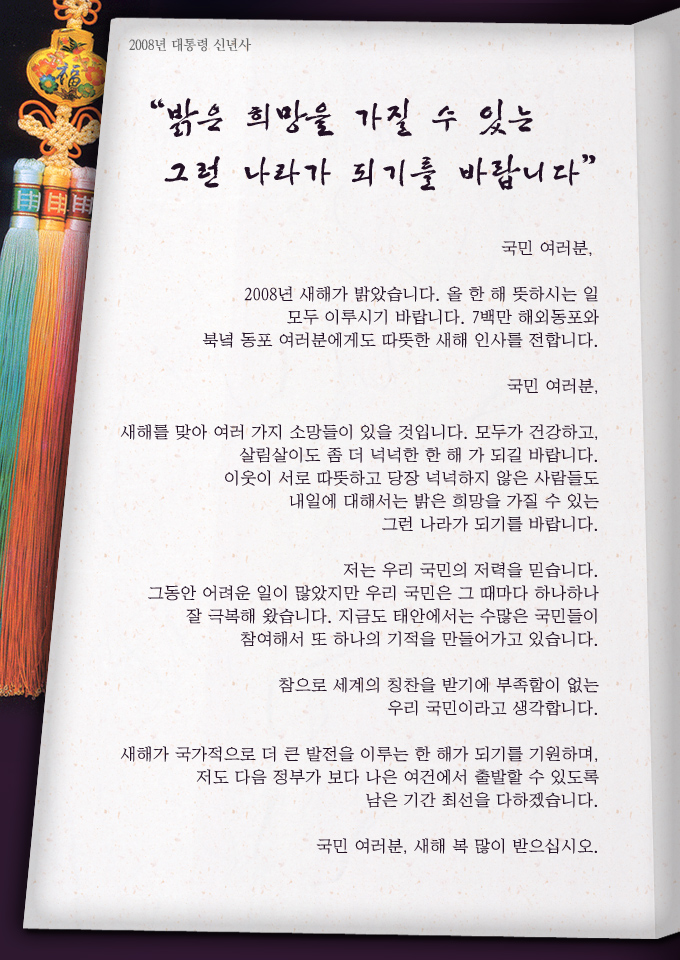 2008년 대통령 신년사
“밝은 희망을 가질 수 있는
그런 나라가 되기를 바랍니다”
국민 여러분,
2008년 새해가 밝았습니다. 올 한 해 뜻하시는 일
모두 이루시기 바랍니다. 7백만 해외동포와
북녘 동포 여러분에게도 따뜻한 새해 인사를 전합니다.
국민 여러분,
새해를 맞아 여러 가지 소망들이 있을 것입니다. 모두가 건강하고,
살림살이도 좀 더 넉넉한 한 해 가 되길 바랍니다.
이웃이 서로 따뜻하고 당장 넉넉하지 않은 사람들도
내일에 대해서는 밝은 희망을 가질 수 있는
그런 나라가 되기를 바랍니다.
저는 우리 국민의 저력을 믿습니다.
그동안 어려운 일이 많았지만 우리 국민은 그 때마다 하나하나
잘 극복해 왔습니다. 지금도 태안에서는 수많은 국민들이
참여해서 또 하나의 기적을 만들어가고 있습니다.
참으로 세계의 칭찬을 받기에 부족함이 없는
우리 국민이라고 생각합니다.
새해가 국가적으로 더 큰 발전을 이루는 한 해가 되기를 기원하며,
저도 다음 정부가 보다 나은 여건에서 출발할 수 있도록
남은 기간 최선을 다하겠습니다.
국민 여러분, 새해 복 많이 받으십시오.
福